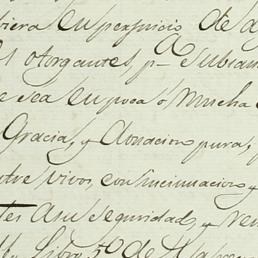 tiera en perjuicio de a
s otorgantes, p.a subian
e sea en poca o Mucha
Gracia, y donacion pura,
tre vivos, con incinuacion y
tes a su Seguridad, y ren
Libro 5.º de